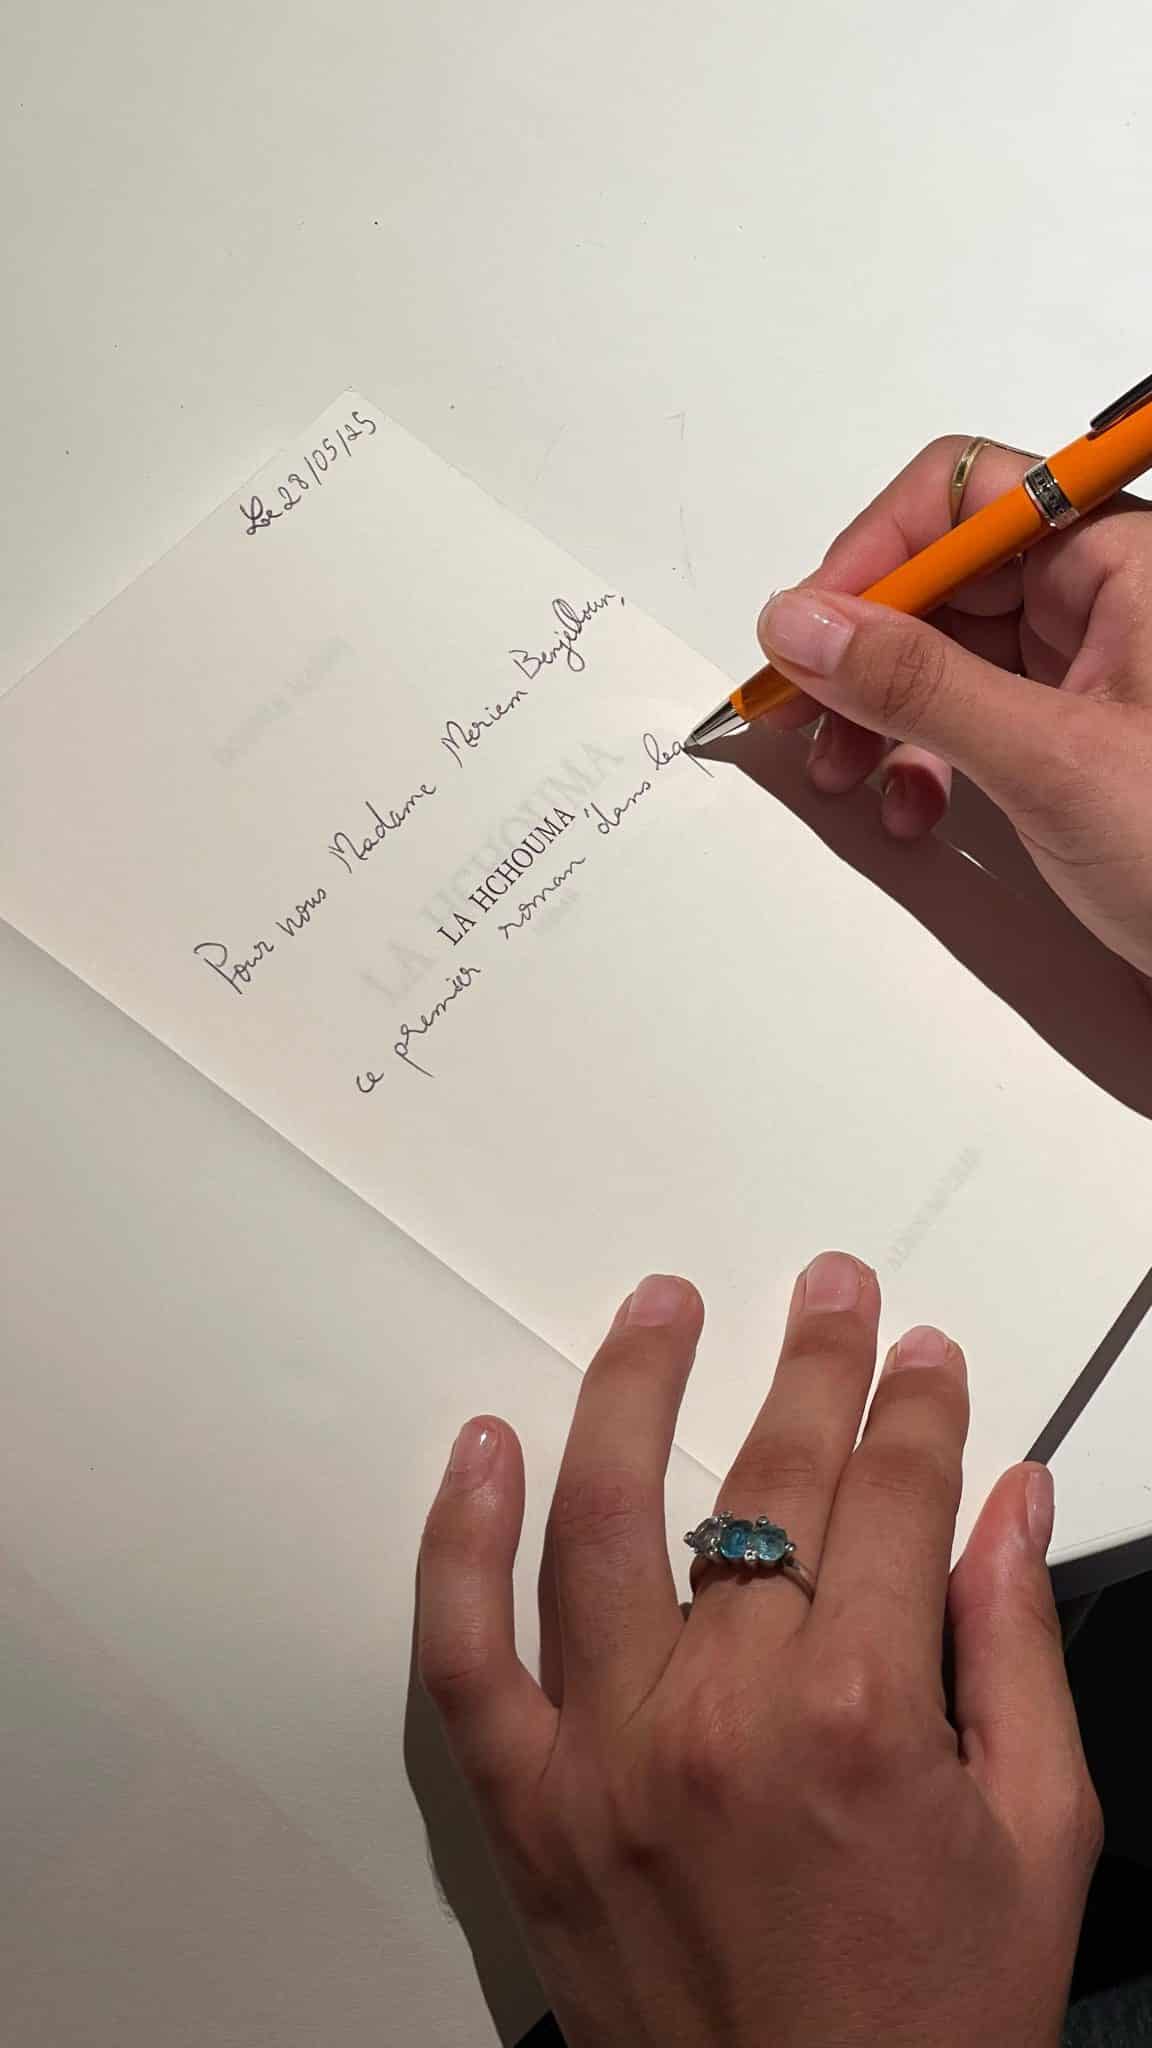 Le 28/05/25
Pour vous Madame Meriem Benjelloun,
LA HCHOUMA
ce premier roman dans leq
LA HCHOUMA